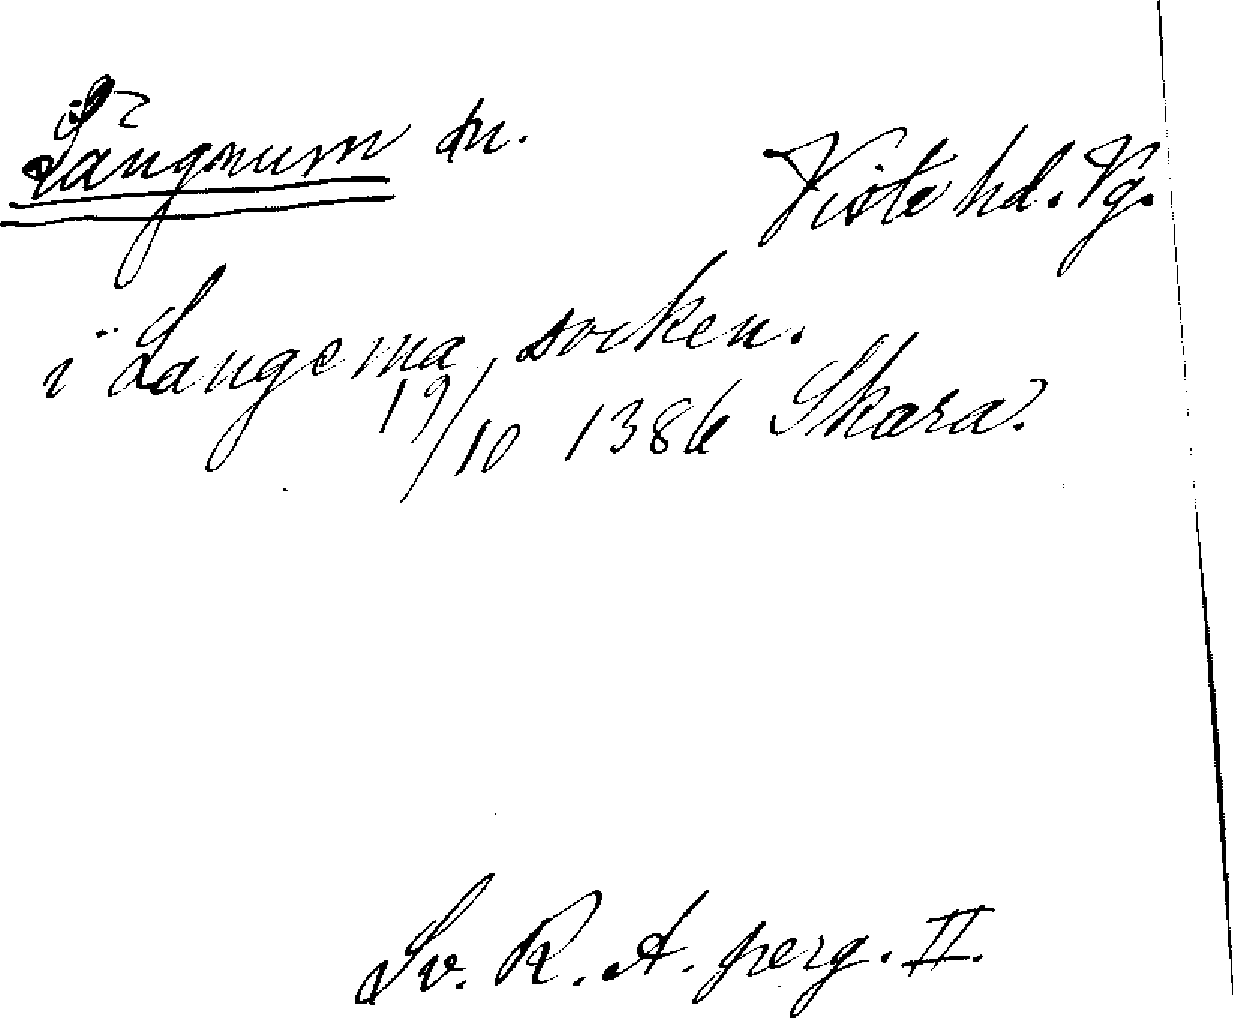 Längnum sn.
Viste hd. Vg.
i Langema socken.
19/10 1386 Skara.
Sv. R. A. perg. II.